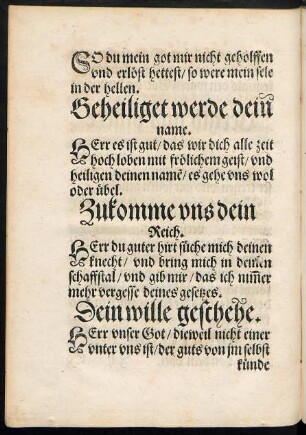 SO du mein got mir nicht geholffen
vnd erlöst hettest/ so were mein sele
in der hellen.
Geheiliget werde dein
name.
HErr es ist gut/ das wir dich alle zeit
hoch loben mit frölichem geist/ vnd
heiligen deinen namē/ es gehe vns wol
oder übel.
Zukomme vns dein
Reich.
HErr du guter hirt süche mich deinen
knecht/ vnd bring mich in deinen
schaffstal/ vnd gib mir/ das ich nim̄er
mehr vergesse deines gesetzes.
Dein wille geschehe.
HErr vnser Got/ dieweil nicht einer
vnter vns ist/ der guts von jm selbst
künde